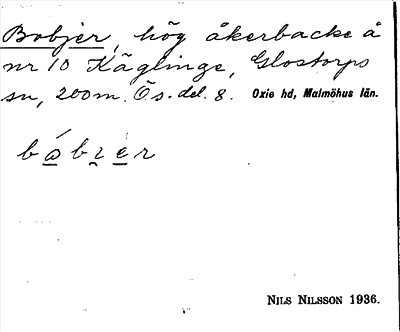 Bobjer, hög åkerbacke å
nr 10 Käglinge, Glostorps
sn, 200 m. Ö s. del. 8. Oxie hd, Malmöhus län.
NILS NILSSON 1936.